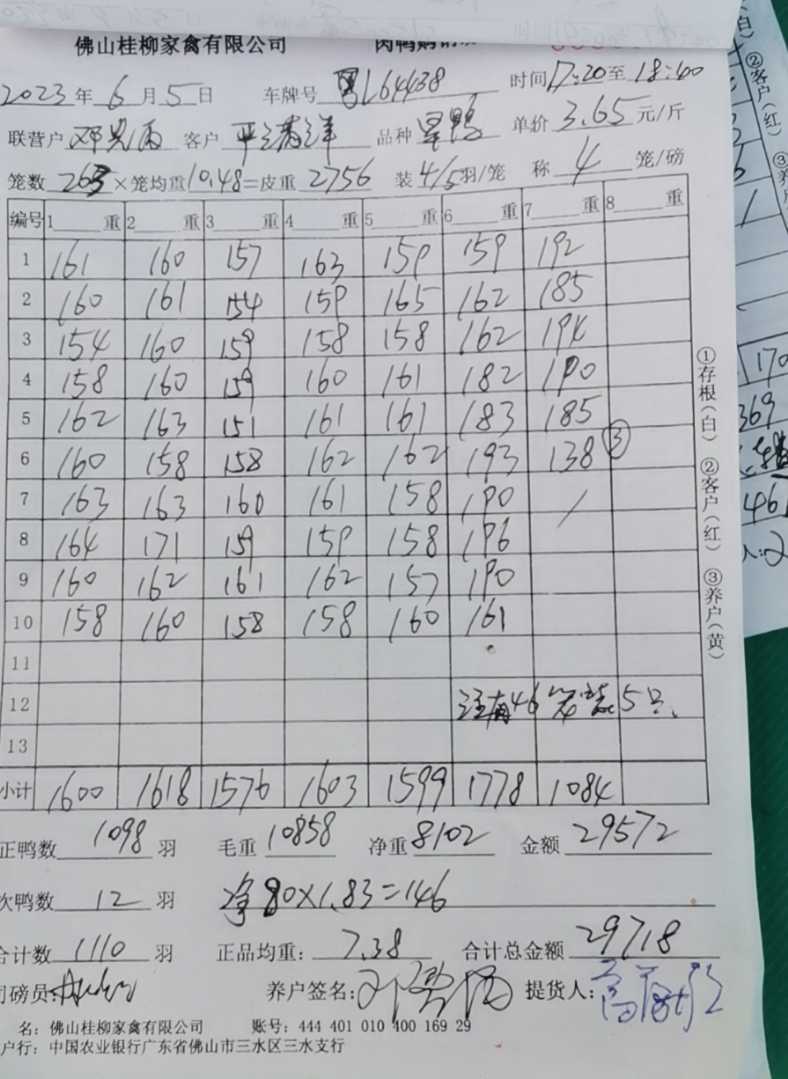 佛山桂柳家禽有限公司
2023年6月5日 车牌号粤L64438 时间17:20至18:40
联营户 客户 品种 单价3.65元/斤
笼数263×笼均重10.48=皮重2756 装4/5羽/笼 称4笼/磅
编号 1重 2重 3重 4重 5重 6重 7重 8重
1 161 160 157 163 159 159 192
2 160 161 154 159 165 162 185
3 154 160 159 158 158 162 194
4 158 160 159 160 161 182 190
5 162 163 151 161 161 183 185
6 160 158 158 162 162 193 138 ③
7 163 163 160 161 158 190 /
8 164 171 159 159 158 196
9 160 162 161 162 157 190
10 158 160 158 158 160 161
11
12 注有46笼装5只.
13
小计 1600 1618 1576 1603 1599 1778 1084
正鸭数1098羽 毛重10858 净重8102 金额29572
次鸭数12羽 净80×1.83=146
合计数1110羽 正品均重:7.38 合计总金额29718
司磅员: 养户签名: 提货人:
名:佛山桂柳家禽有限公司 账号:444 401 010 400 169 29
户行:中国农业银行广东省佛山市三水区三水支行
①存根(白) ②客户(红) ③养户(黄)
②客户(红)
170
369
461